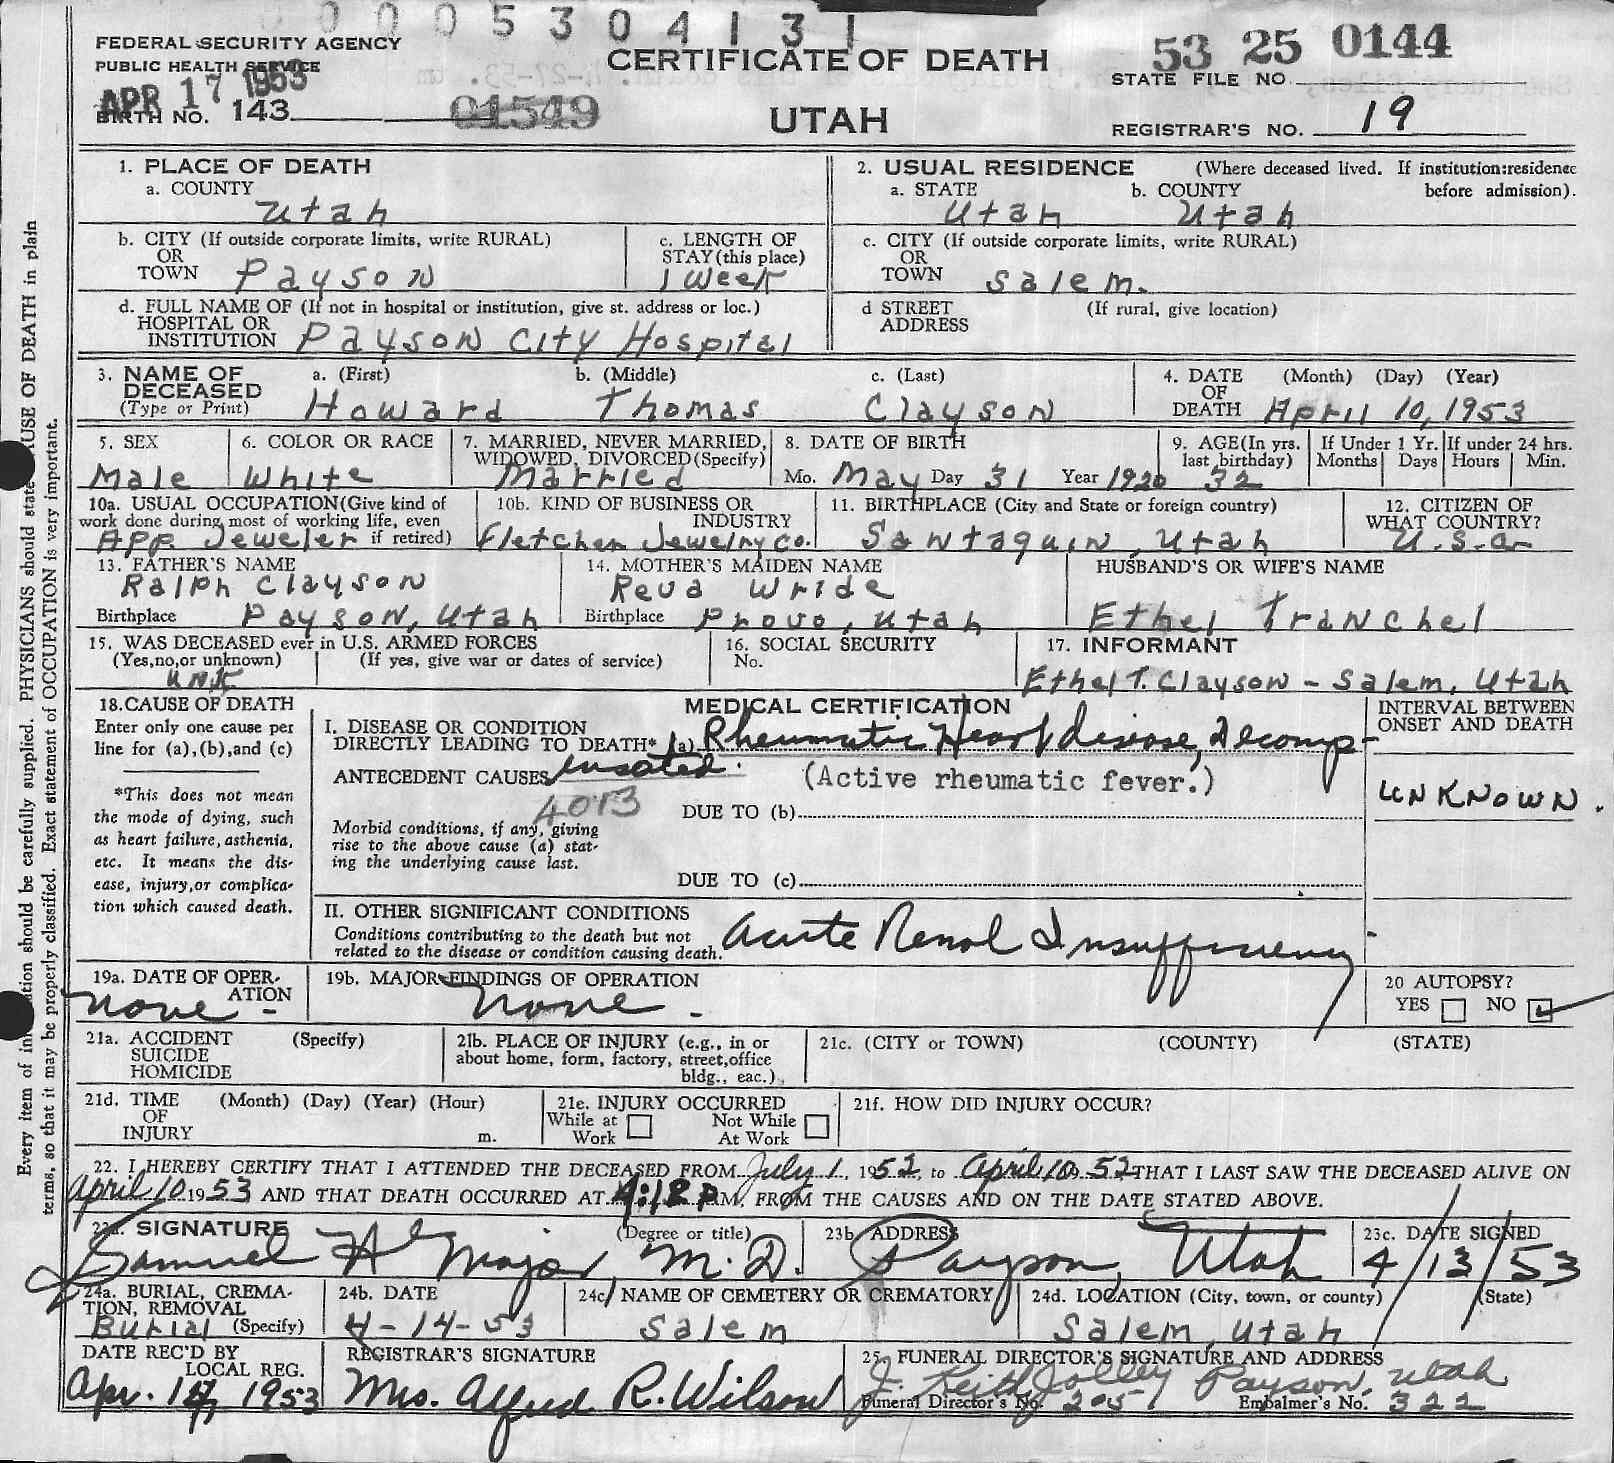 0 0 0 5 3 0 4 1 3 1
FEDERAL SECURITY AGENCY
PUBLIC HEALTH SERVICE
APR 17 1953
BIRTH NO. 143
01549
CERTIFICATE OF DEATH
UTAH
53 25 0144
STATE FILE NO.
REGISTRAR'S NO. 19
1. PLACE OF DEATH
a. COUNTY
Utah
2. USUAL RESIDENCE (Where deceased lived. If institution:residence before admission).
a. STATE b. COUNTY
Utah Utah
b. CITY (If outside corporate limits, write RURAL)
OR
TOWN Payson
c. LENGTH OF
STAY (this place)
1 Week
c. CITY (If outside corporate limits, write RURAL)
OR
TOWN Salem.
d. FULL NAME OF (If not in hospital or institution, give st. address or loc.)
HOSPITAL OR
INSTITUTION Payson City Hospital
d STREET (If rural, give location)
ADDRESS
3. NAME OF
DECEASED
(Type or Print)
a. (First) b. (Middle) c. (Last)
Howard Thomas Clayson
4. DATE (Month) (Day) (Year)
OF
DEATH April 10, 1953
5. SEX
Male
6. COLOR OR RACE
White
7. MARRIED, NEVER MARRIED,
WIDOWED, DIVORCED (Specify)
Married
8. DATE OF BIRTH
Mo. May Day 31 Year 1920
9. AGE (In yrs.
last birthday)
32
If Under 1 Yr.
Months Days
If under 24 hrs.
Hours Min.
10a. USUAL OCCUPATION (Give kind of
work done during most of working life, even
App. Jeweler if retired)
10b. KIND OF BUSINESS OR
INDUSTRY
Fletcher Jewelry Co.
11. BIRTHPLACE (City and State or foreign country)
Santaquin, Utah
12. CITIZEN OF
WHAT COUNTRY?
U.S.A
13. FATHER'S NAME
Ralph Clayson
Birthplace Payson, Utah
14. MOTHER'S MAIDEN NAME
Reva Wride
Birthplace Provo, Utah
HUSBAND'S OR WIFE'S NAME
Ethel Tranchel
15. WAS DECEASED ever in U.S. ARMED FORCES
(Yes,no,or unknown) (If yes, give war or dates of service)
UNK
16. SOCIAL SECURITY
No.
17. INFORMANT
Ethel T. Clayson - Salem, Utah
18. CAUSE OF DEATH
Enter only one cause per
line for (a),(b),and (c)
*This does not mean
the mode of dying, such
as heart failure, asthenia,
etc. It means the dis-
ease, injury,or complica-
tion which caused death.
MEDICAL CERTIFICATION
I. DISEASE OR CONDITION
DIRECTLY LEADING TO DEATH* (a) Rheumatic Heart disease, decomp-
ANTECEDENT CAUSES ensated. (Active rheumatic fever.)
4013
DUE TO (b)
Morbid conditions, if any, giving
rise to the above cause (a) stat-
ing the underlying cause last.
DUE TO (c)
INTERVAL BETWEEN
ONSET AND DEATH
UNKNOWN.
II. OTHER SIGNIFICANT CONDITIONS
Conditions contributing to the death but not
related to the disease or condition causing death. Acute Renal Insufficiency
19a. DATE OF OPER-
ATION
none -
19b. MAJOR FINDINGS OF OPERATION
none -
20 AUTOPSY?
YES NO
21a. ACCIDENT (Specify)
SUICIDE
HOMICIDE
21b. PLACE OF INJURY (e.g., in or
about home, form, factory, street,office
bldg., eac.)
21c. (CITY or TOWN) (COUNTY) (STATE)
21d. TIME (Month) (Day) (Year) (Hour)
OF
INJURY m.
21e. INJURY OCCURRED
While at Work Not While At Work
21f. HOW DID INJURY OCCUR?
22. I HEREBY CERTIFY THAT I ATTENDED THE DECEASED FROM July 1, 1952, to April 10 1953 THAT I LAST SAW THE DECEASED ALIVE ON
April 10 1953 AND THAT DEATH OCCURRED AT 4:18 P.M, FROM THE CAUSES AND ON THE DATE STATED ABOVE.
23a. SIGNATURE (Degree or title)
Samuel H Major, M.D.
23b. ADDRESS
Payson, Utah
23c. DATE SIGNED
4/13/53
24a. BURIAL, CREMA-
TION, REMOVAL
Burial (Specify)
24b. DATE
4-14-53
24c. NAME OF CEMETERY OR CREMATORY
Salem
24d. LOCATION (City, town, or county) (State)
Salem, Utah
DATE REC'D BY
LOCAL REG.
Apr. 14, 1953
REGISTRAR'S SIGNATURE
Mrs. Alfred R. Wilson
25. FUNERAL DIRECTOR'S SIGNATURE AND ADDRESS
J. Keith Jolley Payson, Utah
Funeral Director's No. 205 Embalmer's No. 322
Every item of information should be carefully supplied. PHYSICIANS should state CAUSE OF DEATH in plain
terms, so that it may be properly classified. Exact statement of OCCUPATION is very important.